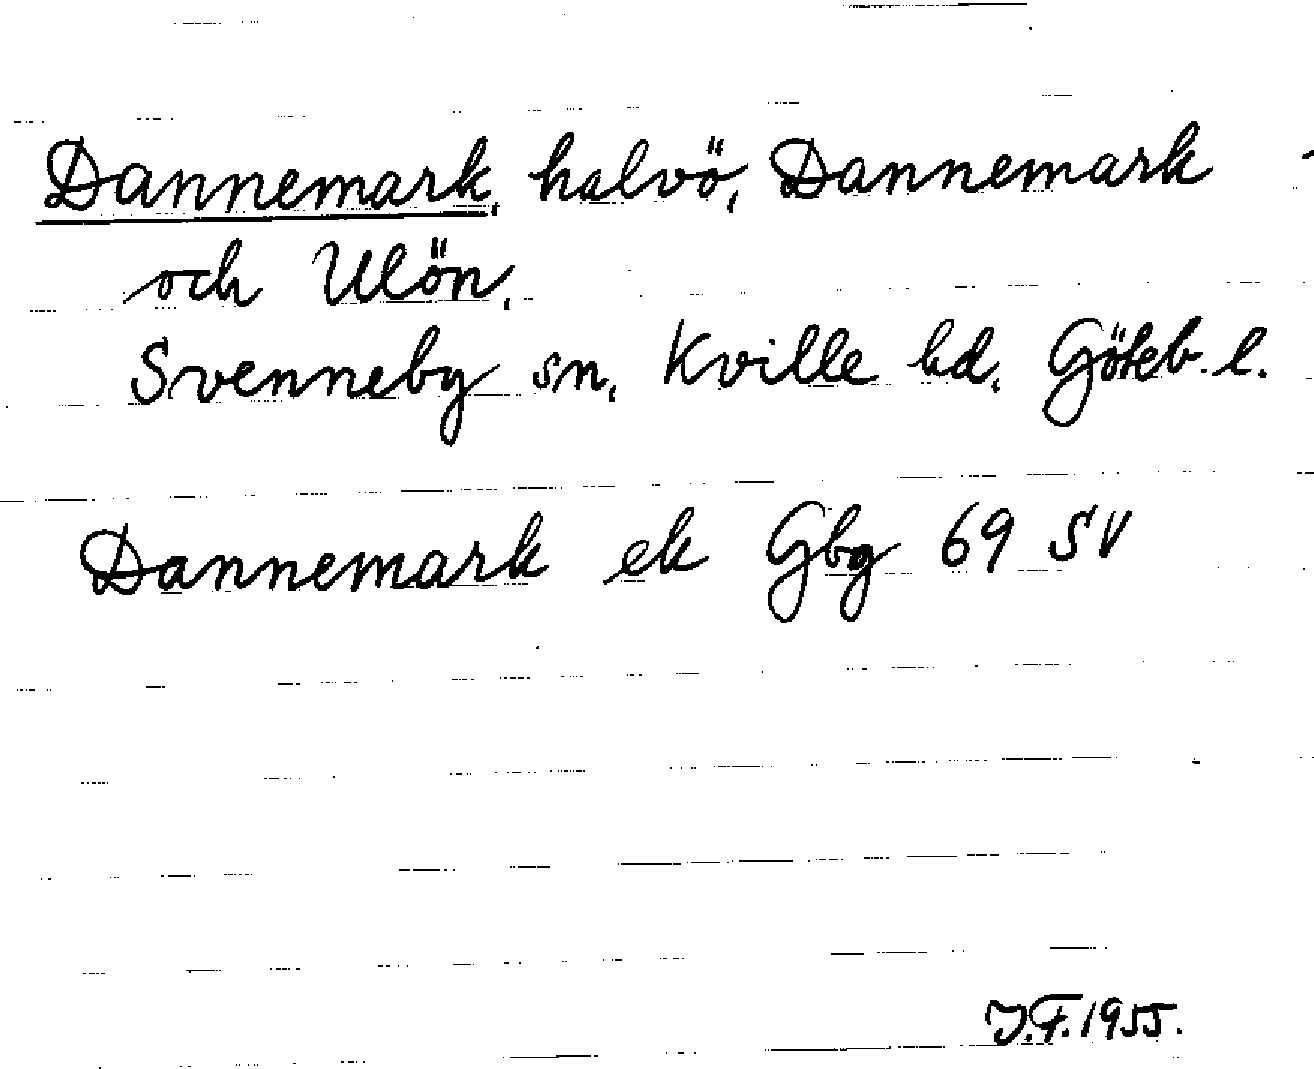 Dannemark, halvö, Dannemark
och Ulön.
Svenneby sn, Kville hd. Göteb. l.
Dannemark ek Gbg 69 SV
J.F. 1955.